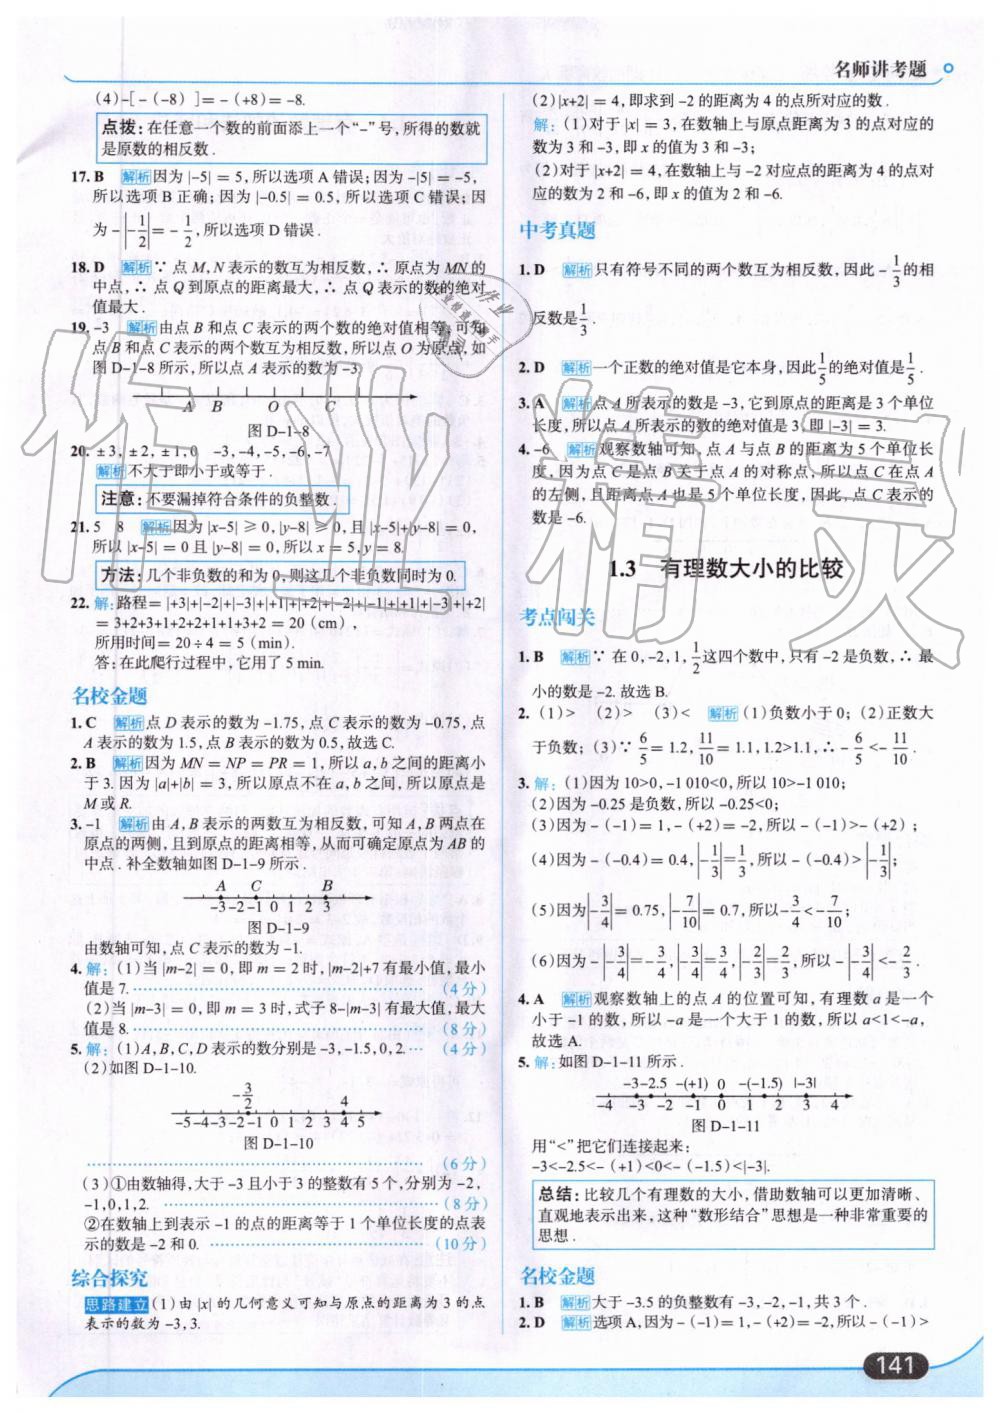 名师讲考题
(4)-[-(-8)]=-(+8)=-8.
点拨:在任意一个数的前面添上一个“-”号,所得的数就
是原数的相反数.
17. B 解析 因为|-5|=5,所以选项A错误;因为-|5|=-5,
所以选项B正确;因为|-0.5|=0.5,所以选项C错误;因
为-|-1/2|=-1/2,所以选项D错误.
18. D 解析 ∵点M,N表示的数互为相反数,∴原点为MN的
中点,∴点Q到原点的距离最大,∴点Q表示的数的绝对
值最大.
19. -3 解析 由点B和点C表示的两个数的绝对值相等,可知
点B和点C表示的两个数互为相反数,所以点O为原点,如
图D-1-8所示,所以点A表示的数为-3.
A B O C
图D-1-8
20. ±3,±2,±1,0 -3,-4,-5,-6,-7
解析 不大于即小于或等于.
注意:不要漏掉符合条件的负整数.
21. 5 8 解析 因为|x-5|≥0,|y-8|≥0,且|x-5|+|y-8|=0,
所以|x-5|=0且|y-8|=0,所以x=5,y=8.
方法:几个非负数的和为0,则这几个非负数同时为0.
22. 解:路程=|+3|+|-2|+|-3|+|+1|+|+2|+|-2|+|-1|+|+1|+|-3|+|+2|
=3+2+3+1+2+2+1+1+3+2=20(cm),
所用时间=20÷4=5(min).
答:在此爬行过程中,它用了5 min.
名校金题
1. C 解析 点D表示的数为-1.75,点C表示的数为-0.75,点
A表示的数为1.5,点B表示的数为0.5,故选C.
2. B 解析 因为MN=NP=PR=1,所以a,b之间的距离小
于3.因为|a|+|b|=3,所以原点不在a,b之间,所以原点是
M或R.
3. -1 解析 由A,B表示的两数互为相反数,可知A,B两点在
原点的两侧,且到原点的距离相等,从而可确定原点为AB的
中点.补全数轴如图D-1-9所示.
A C B
-3 -2 -1 0 1 2 3
图D-1-9
由数轴可知,点C表示的数为-1.
4. 解:(1)当|m-2|=0,即m=2时,|m-2|+7有最小值,最小
值是7. (4分)
(2)当|m-3|=0,即m=3时,式子8-|m-3|有最大值,最大
值是8. (8分)
5. 解:(1)A,B,C,D表示的数分别是-3,-1.5,0,2. (4分)
(2)如图D-1-10.
-3/2 4
-5 -4 -3 -2 -1 0 1 2 3 4 5
图D-1-10
(6分)
(3)①由数轴得,大于-3且小于3的整数有5个,分别为-2,
-1,0,1,2. (8分)
②在数轴上到表示-1的点的距离等于1个单位长度的点表
示的数是-2和0. (10分)
综合探究
思路建立 (1)由|x|的几何意义可知与原点的距离为3的点
表示的数为-3,3.
(2)|x+2|=4,即求到-2的距离为4的点所对应的数.
解:(1)对于|x|=3,在数轴上与原点距离为3的点对应的
数为3和-3,即x的值为3和-3;
(2)对于|x+2|=4,在数轴上与-2对应点的距离为4的点对
应的数为2和-6,即x的值为2和-6.
中考真题
1. D 解析 只有符号不同的两个数互为相反数,因此-1/3的相
反数是1/3.
2. D 解析 一个正数的绝对值是它本身,因此1/5的绝对值是1/5.
3. A 解析 点A所表示的数是-3,它到原点的距离是3个单位
长度,所以点A所表示的数的绝对值是3,即|-3|=3.
4. -6 解析 观察数轴可知,点A与点B的距离为5个单位长
度,因为点C是点B关于点A的对称点,所以点C在点A
的左侧,且距离点A也是5个单位长度,因此,点C表示的
数是-6.
1.3 有理数大小的比较
考点闯关
1. B 解析 ∵在0,-2,1,1/2这四个数中,只有-2是负数,∴最
小的数是-2.故选B.
2. (1)> (2)> (3)< 解析 (1)负数小于0;(2)正数大
于负数;(3)∵6/5=1.2,11/10=1.1,1.2>1.1,∴-6/5<-11/10.
3. 解:(1)因为10>0,-1 010<0,所以10>-1 010;
(2)因为-0.25是负数,所以-0.25<0;
(3)因为-(-1)=1,-(+2)=-2,所以-(-1)>-(+2);
(4)因为-(-0.4)=0.4,|-1/3|=1/3,所以-(-0.4)>|-1/3|;
(5)因为|-3/4|=0.75,|-7/10|=0.7,所以-3/4<-7/10;
(6)因为-|-3/4|=-3/4,|-3/4|=3/4,|-2/3|=2/3,所以-|-3/4|<-2/3.
4. A 解析 观察数轴上的点A的位置可知,有理数a是一个
小于-1的数,所以-a是一个大于1的数,所以a<1<-a,
故选A.
5. 解:如图D-1-11所示.
-3 -2.5 -(+1) 0 -(-1.5) |-3|
-4 -3 -2 -1 0 1 2 3 4
图D-1-11
用“<”把它们连接起来:
-3<-2.5<-(+1)<0<-(-1.5)<|-3|.
总结:比较几个有理数的大小,借助数轴可以更加清晰、
直观地表示出来,这种“数形结合”思想是一种非常重要的
思想.
名校金题
1. B 解析 大于-3.5的负整数有-3,-2,-1,共3个.
2. D 解析 选项A,因为-(-1)=1,-(+2)=-2,所以-(-1)>
141
作业精灵